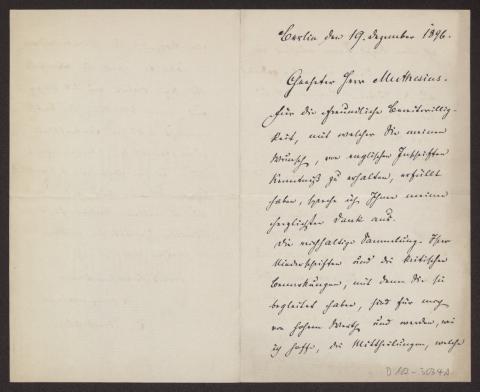 Berlin den 19. Dezember 1896.
Geehrter Herr Muthesius.
Für die freundliche Bereitwillig-
keit, mit welcher Sie meinen
Wunsch, von englischen Inschriften
Kenntniß zu erhalten, erfüllt
haben, spreche ich Ihnen meinen
herzlichsten Dank aus.
Die reichhaltige Sammlung Ihrer
Niederschriften und die kritischen
Bemerkungen, mit denen Sie sie
begleitet haben, sind für mich
von hohem Werth und werden, wie
ich hoffe, die Mittheilungen, welche
D 102-3034a